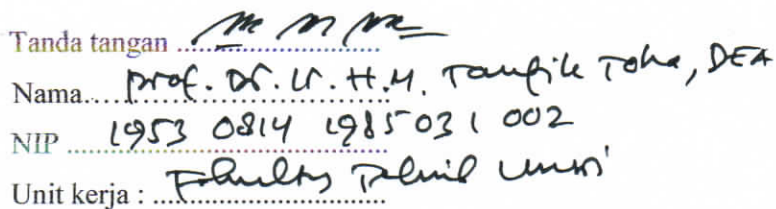 Tanda tangan ..................
Nama..... Prof. Dr. Ir. H.M. Taufik Toha, DEA
NIP ..... 1953 0814 198503 1 002
Unit kerja : Fakultas Teknik Unsri